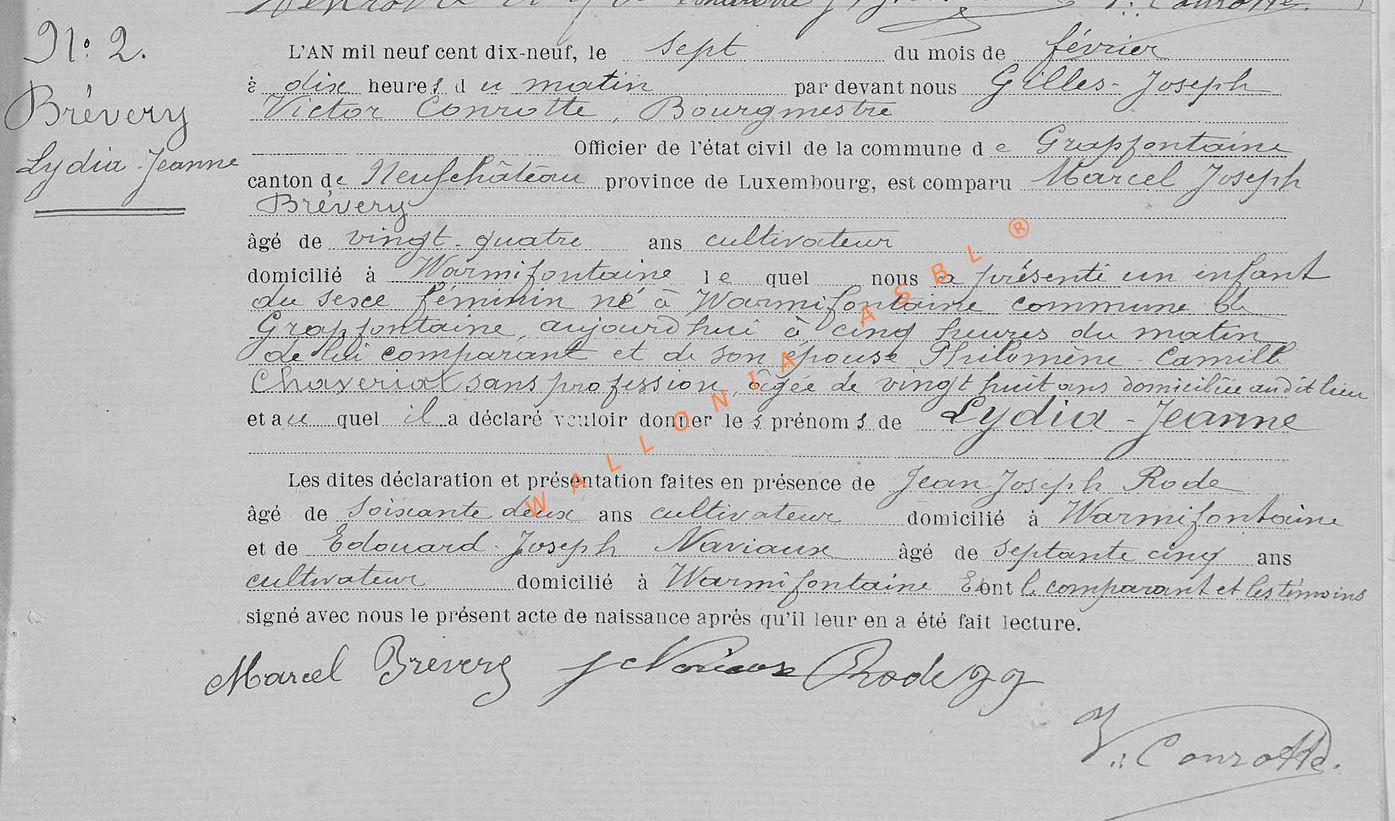 V. Conrotte.
N.º 2.
Brévery
Lydia-Jeanne
L'AN mil neuf cent dix-neuf, le sept du mois de février
à dix heures du matin par devant nous Gilles-Joseph
Victor Conrotte, Bourgmestre
Officier de l'état civil de la commune de Grapfontaine
canton de Neufchâteau province de Luxembourg, est comparu Marcel Joseph
Brévery
âgé de vingt-quatre ans cultivateur
domicilié à Warmifontaine lequel nous a présenté un enfant
du sexe féminin né à Warmifontaine commune de
Grapfontaine aujourd'hui à cinq heures du matin
de lui comparant et de son épouse Philomène-Camille
Chaveriat sans profession, âgée de vingt huit ans domiciliée audit lieu
et auquel il a déclaré vouloir donner les prénoms de Lydia-Jeanne
Les dites déclaration et présentation faites en présence de Jean Joseph Rode
âgé de soixante deux ans cultivateur domicilié à Warmifontaine
et de Edouard-Joseph Naviaux âgé de septante cinq ans
cultivateur domicilié à Warmifontaine Et ont le comparant et les témoins
signé avec nous le présent acte de naissance après qu'il leur en a été fait lecture.
Marcel Brévery J Naviaux Rode JJ
V. Conrotte.
WALLONIA ASBL ®